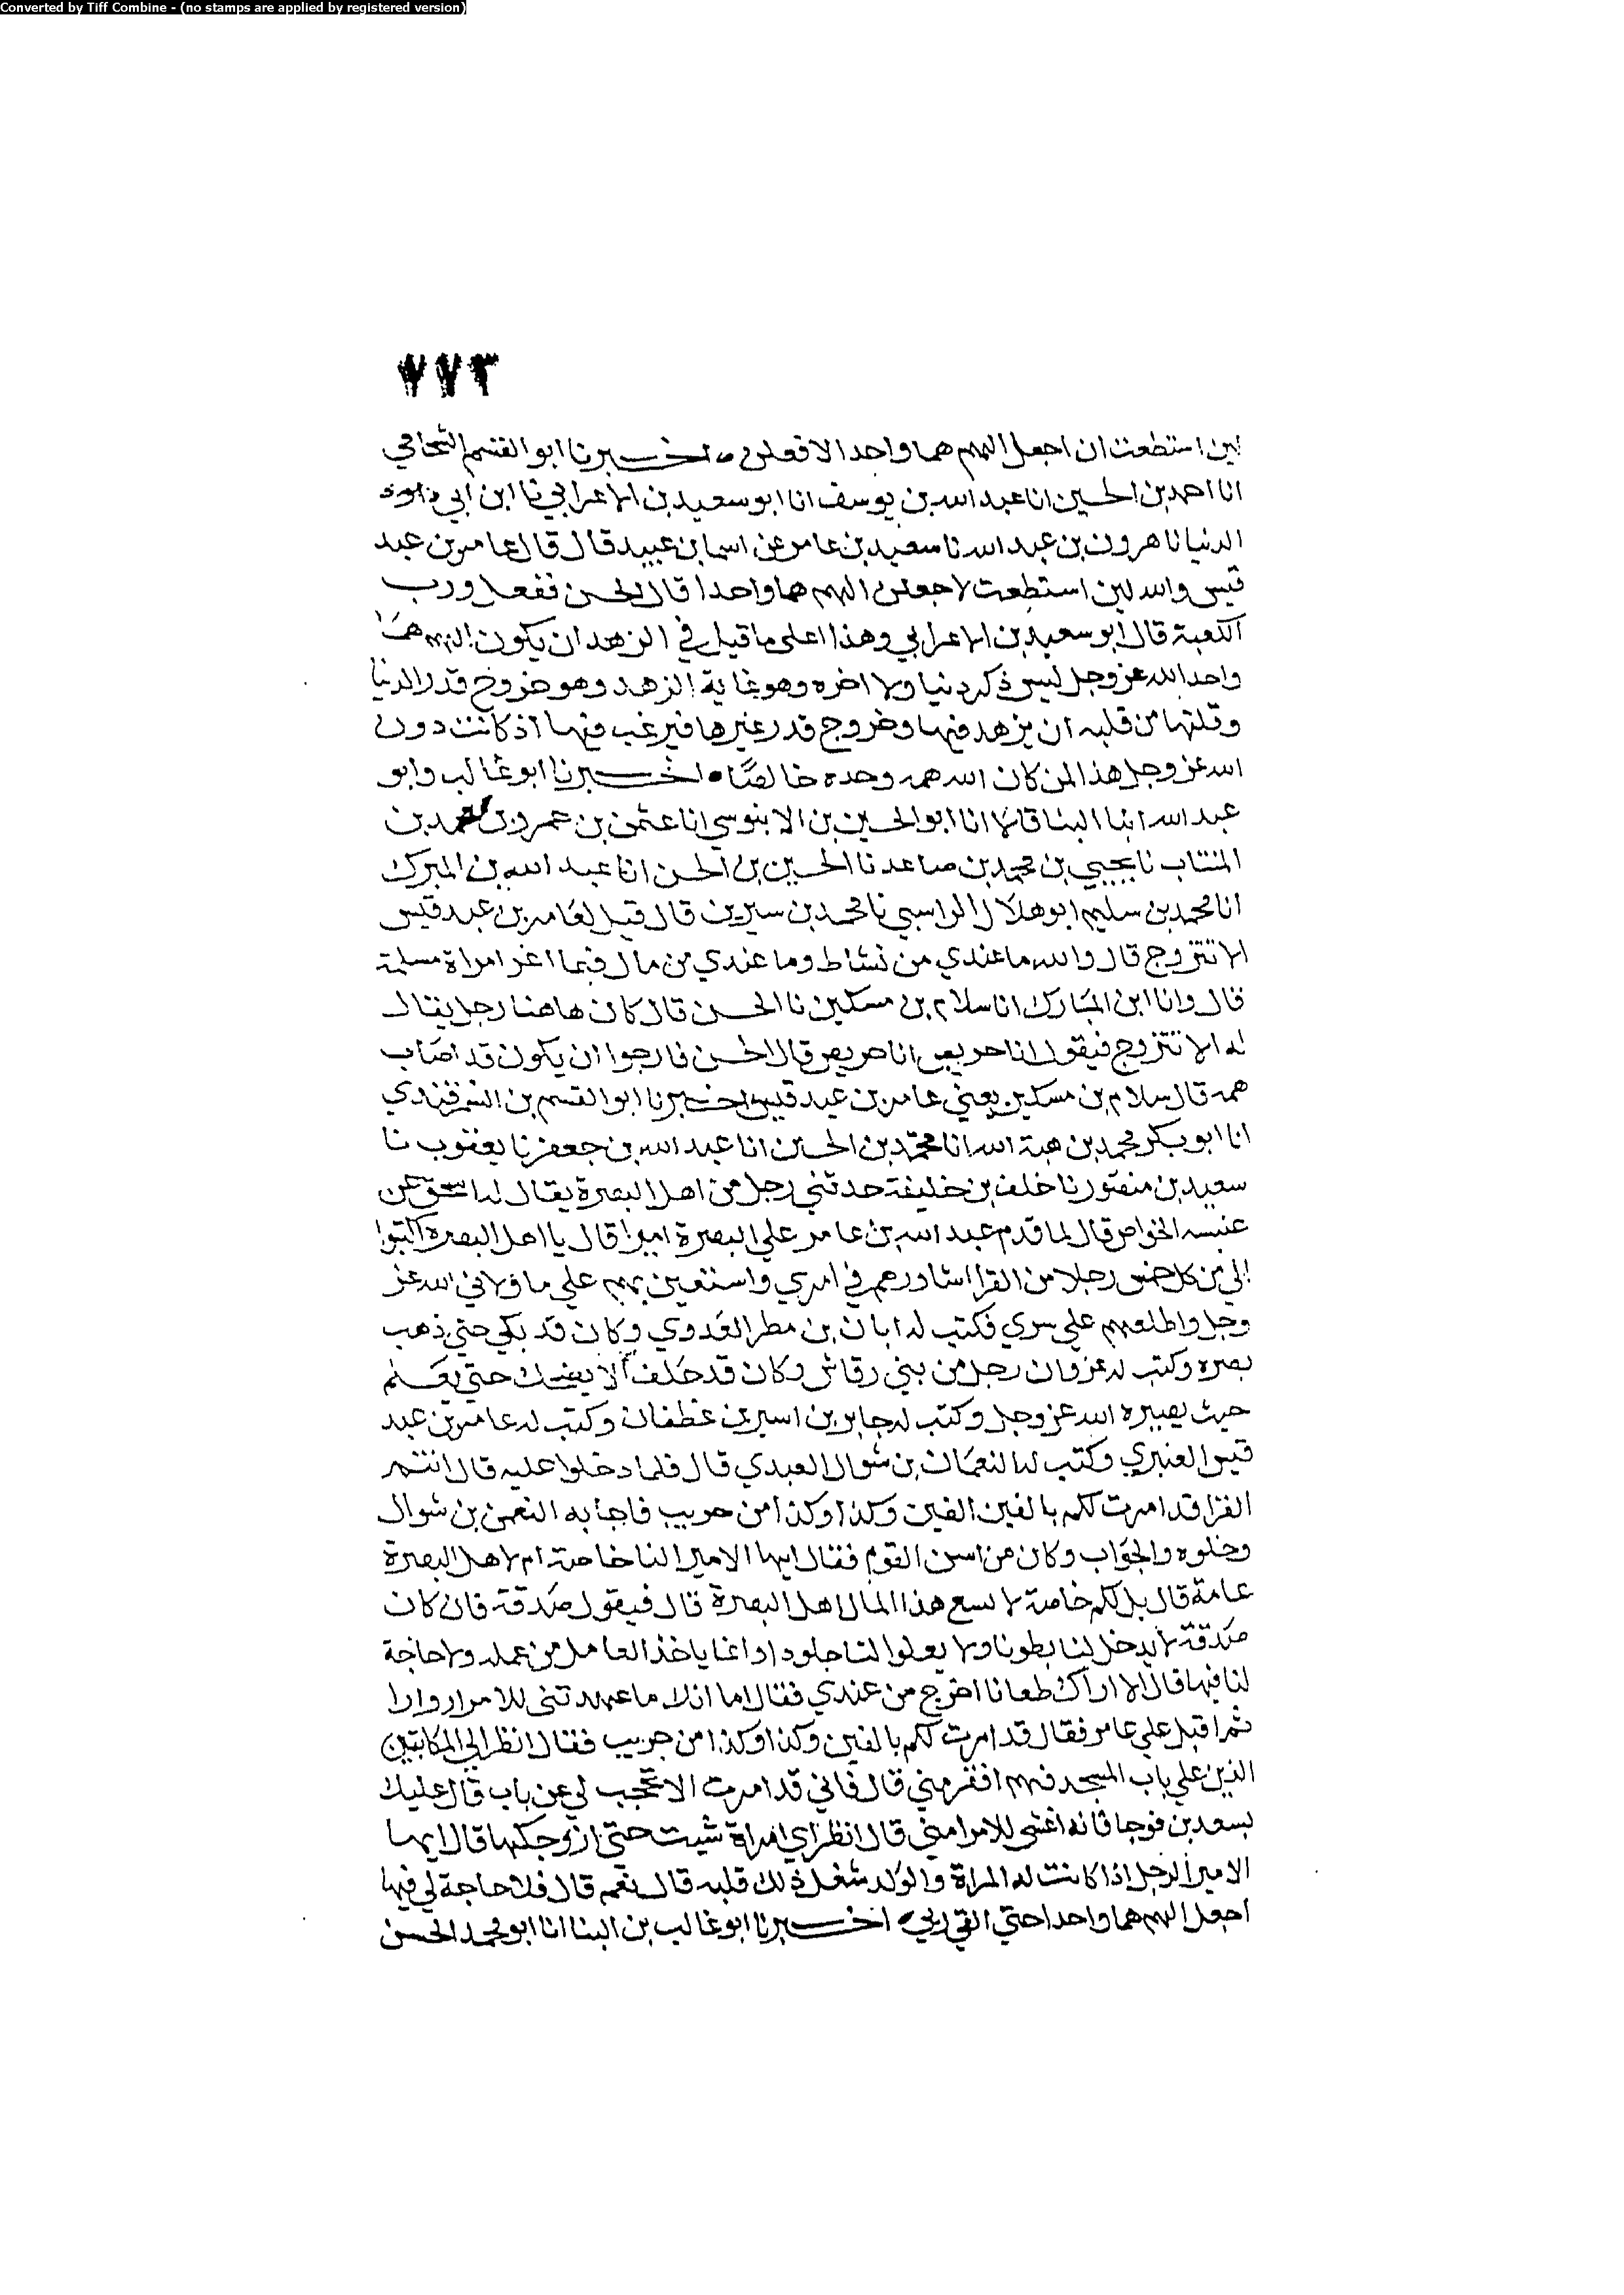 Converted by Tiff Combine - (no stamps are applied by registered version)
٧٧٣
لين استطعت ان اجعل الهم هما واحدا لافعلن اخبرنا ابو القسم الشحامي
انا احمد بن الحسين انا عبد الله بن يوسف انا ابو سعيد بن الاعرابي نا ابن ابي
الدنيا نا هرون بن عبد الله نا سعيد بن عامر عن اسما بن عبيد قال قال عامر بن عبد
قيس والله لين استطعت لاجعلن الهم هما واحدا قال الحسن ففعل ورب
الكعبة قال ابو سعيد بن الاعرابي وهذا اعلى ما قيل في الزهد ان يكون الهم هما
واحد الله عز وجل ليس ذكر دنيا ولا اخره وهو غاية الزهد وهو خروج قدر الدنيا
وقلتها من قلبه ان يزهد فيها وخروج قدر غيرها فيرغب فيها اذ كانت دون
الله عز وجل هذا لمن كان الله همه وحده خالصا اخبرنا ابو غالب وابو
عبد الله ابنا البنا قالا انا ابو الحسين بن الابنوسي انا عثمن بن عمرو بن محمد بن
المنتاب نا يحيي بن محمد بن صاعد نا الحسين بن الحسن انا عبد الله بن المبرك
انا محمد بن سليم ابو هلال الراسبي نا محمد بن سيرين قال قيل لعامر بن عبد قيس
الا تتزوج قال والله ما عندي من نشاط وما عندي من مال فبما اغر امراة مسلمة
قال وانا ابن المبارك انا سلام بن مسكين نا الحسن قال كان هاهنا رجل يقال
له الا تتزوج فيقول انا حريص انا حريص قال الحسن فارجوا ان يكون قد اصاب
همه قال سلام بن مسكين يعني عامر بن عبد قيس اخبرنا ابو القسم بن السمرقندي
انا ابو بكر محمد بن هبة الله انا محمد بن الحسين انا عبد الله بن جعفر نا يعقوب نا
سعيد بن منصور نا خلف بن خليفة حدثني رجل من اهل البصرة يقال له اسحق عن
عنبسه الخواص قال لما قدم عبد الله بن عامر علي البصرة اميرا قال يا اهل البصرة اكتبوا
الي من كل خمس رجلا من القرا اشاورهم في امري واستعين بهم علي ما ولاني الله عز
وجل واطلعهم علي سري فكتب له ابان بن مطر العدوي وكان قد بكي حتي ذهب
بصره وكتب له غزوان رجل من بني رقاش وكان قد حلف الا يضحك حتي يعلم
حيث يصيره الله عز وجل وكتب له جابر بن اسير من غطفان وكتب له عامر بن عبد
قيس العنبري وكتب له النعمان بن شوال العبدي قال فلما دخلوا عليه قال انتم
القرا قد امرت لكم بالفين الفين وكذا وكذا من جريب فاجابه النعمن بن شوال
وخلوه والجواب وكان من اسن القوم فقال ايها الامير النا خاصة ام لاهل البصرة
عامة قال بل لكم خاصة لا يسع هذا المال اهل البصرة قال فيقول صدقة فان كان
صدقة لا يدخل لنا بطونا ولا يعلوا لنا جلودا وانما ياخذ العامل من عمله ولا حاجة
لنا فيها قال الا اراك طعانا اخرج من عندي فقال اما انك ما عهدتني للامرا زوارا
ثم اقبل علي عامر فقال قد امرت لكم بالفين وكذا وكذا من جريب فقال انظر الي المكاتبين
الذين علي باب المسجد فهم افقر مني قال فاني قد امرت الا تحجب لي عن باب قال عليك
بسعد بن قرحا فانه اغشى للامرا مني قال انظر اي امراة شيت حتى ازوجكها قال ايها
الامير الرجل اذا كانت له المراة والولد شغل ذلك قلبه قال نعم قال فلا حاجة لي فيها
اجعل الهم هما واحدا حتي القي ربي اخبرنا ابو غالب بن البنا انا ابو محمد الحسن